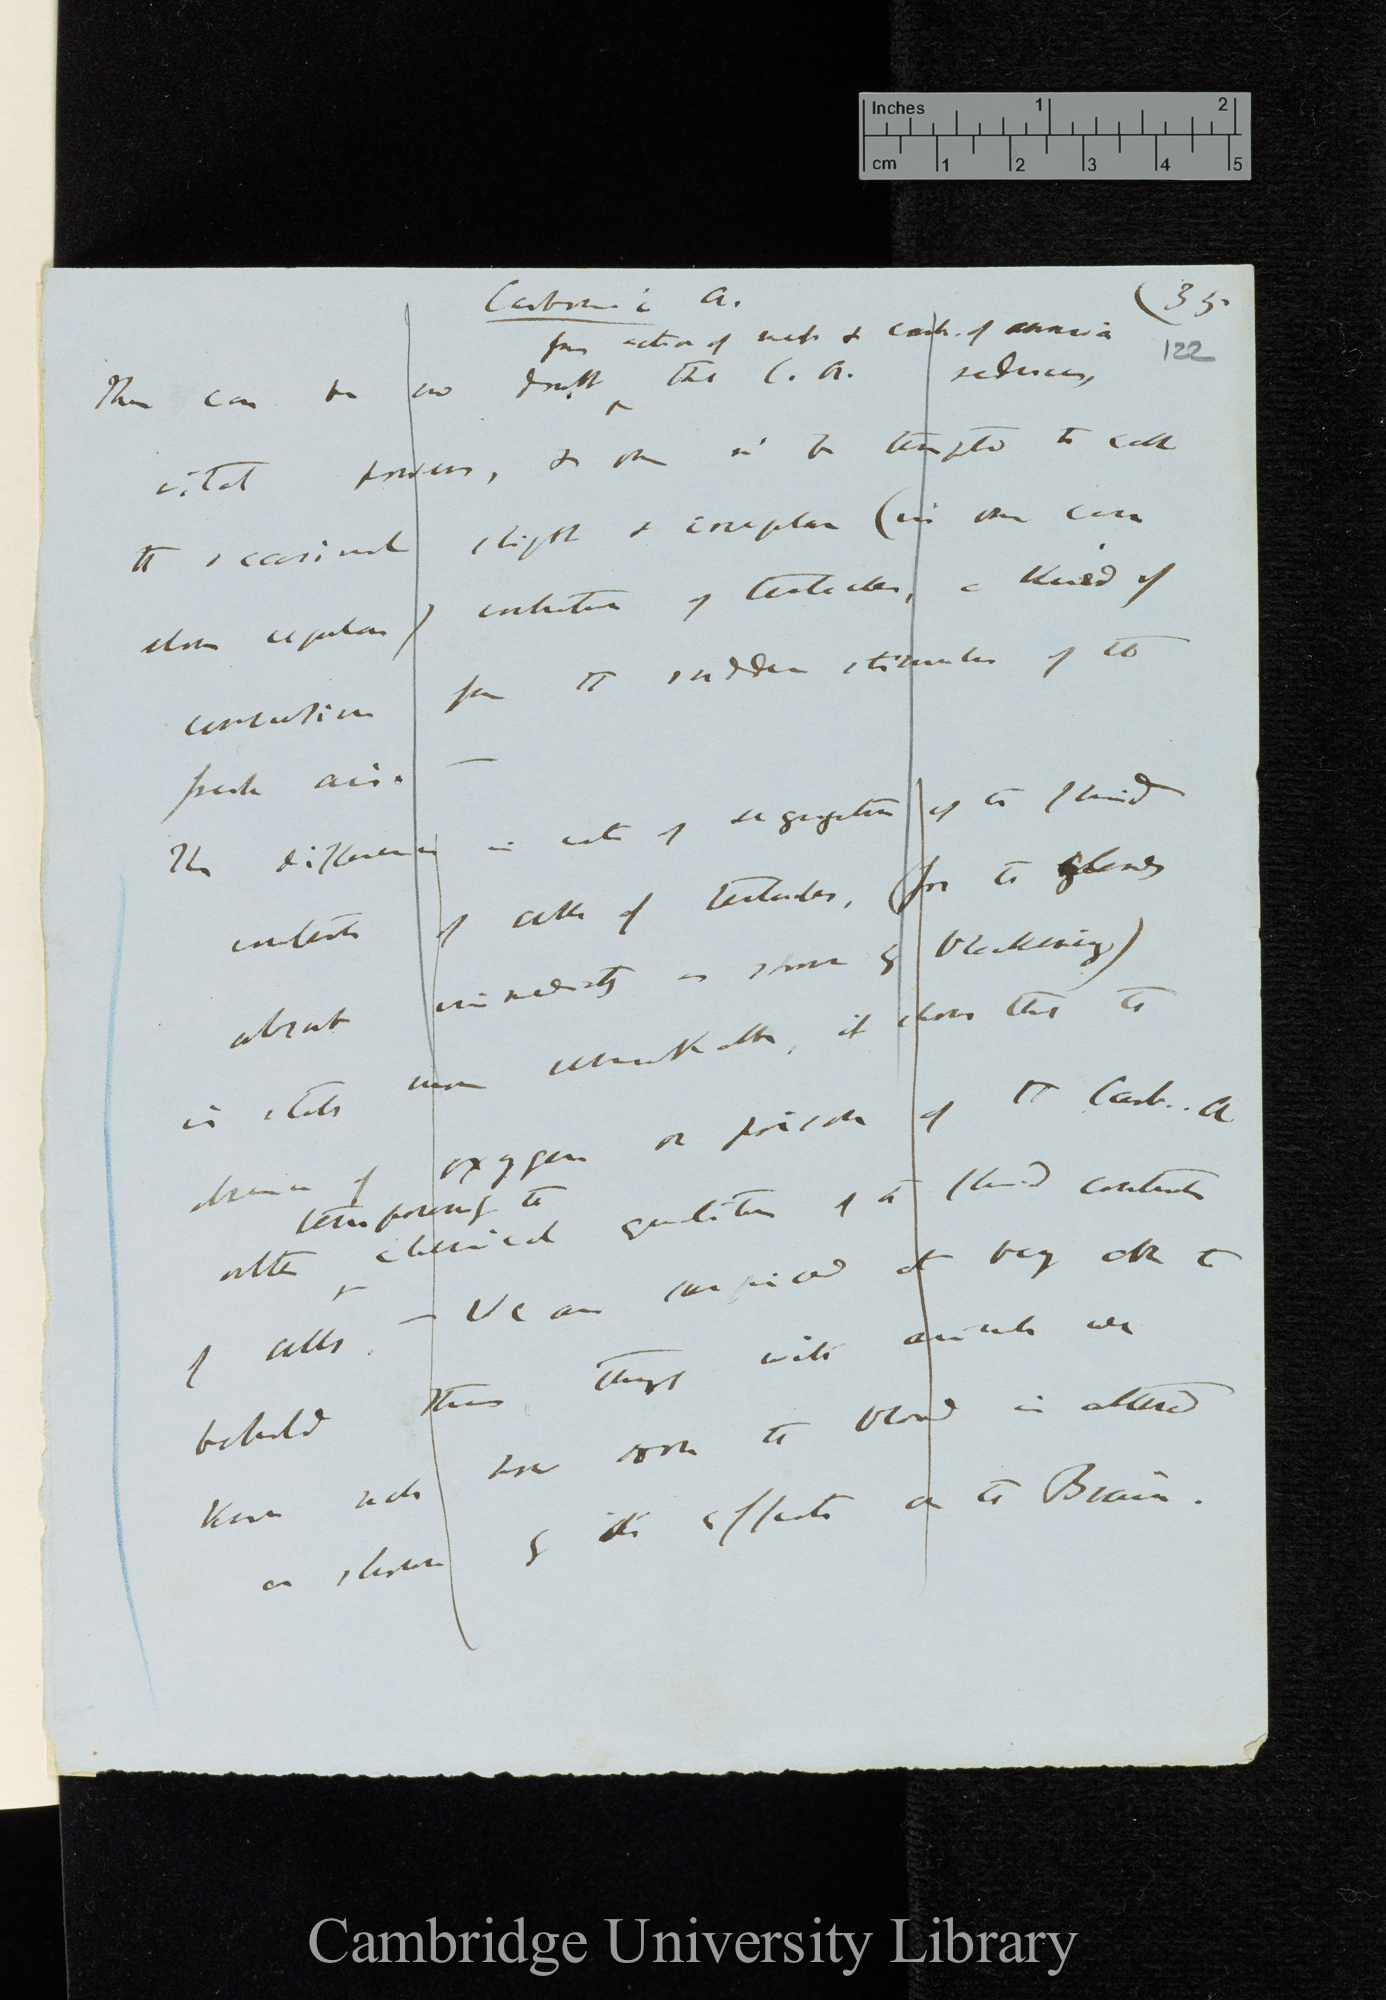 Inches 1 2
cm 1 2 3 4 5
Carbonic A.
(35.
122
from action of meat & carb. of ammonia
There can be no doubt that C. A. reduces
vital powers, & one is tempted to call
the occasional slight & irregular (in one case
slow regular) inflection of tentacles, a kind of
convulsion from the sudden stimulus of the
fresh air. —
The difference in rate of segregation of the fluid
contents of cells of tentacles, (for the glands
absorb immediately as shown by blackening)
is still more remarkable, it shows that the
absence of oxygen or poison of the Carb. A
temporarily the
alters chemical qualities of the fluid contents
of cells. — We are surprised at being able to
behold these things with animals we
know how soon the blood is altered
as shown by its effects on the Brain.
Cambridge University Library